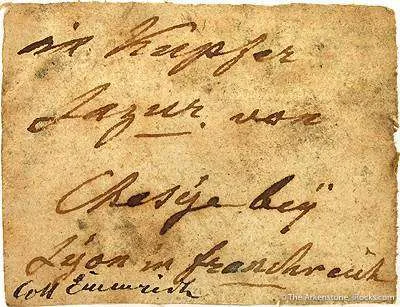 in Kupfer
Lazur. von
Chesÿe beÿ
Lÿon in franchreich
Coll Emmrich
© The Arkenstone, iRocks.com